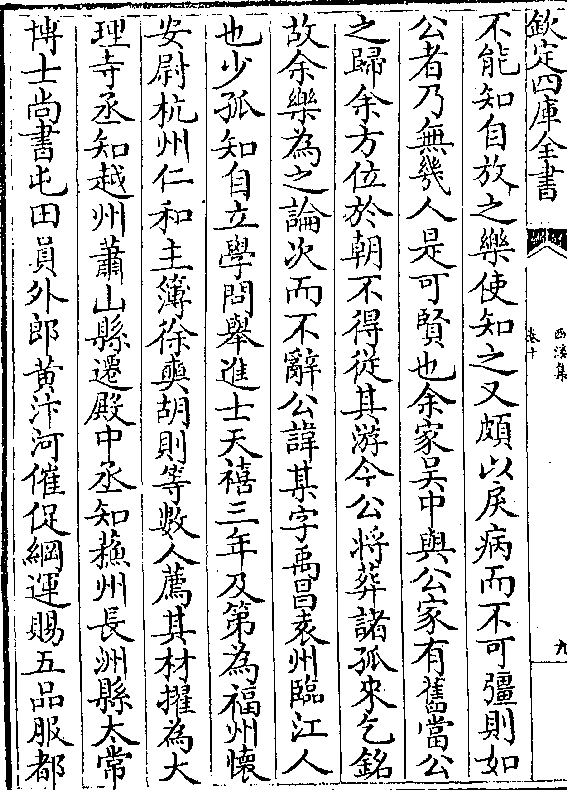 欽定四庫全書
西溪集
卷十
九
不能知自放之樂使知之又頗以戾病而不可彊則如
公者乃無幾人是可賢也余家吴中與公家有舊當公
之歸余方位於朝不得從其游今公将葬諸孤來乞銘
故余樂為之論次而不辭公諱某字禹昌袁州臨江人
也少孤知自立學問舉進士天禧三年及第為福州懐
安尉杭州仁和主簿徐奭胡則等數人薦其材擢為大
理寺丞知越州蕭山縣遷殿中丞知蘓州長洲縣太常
博士尚書屯田員外郎黄汴河催促綱運賜五品服都